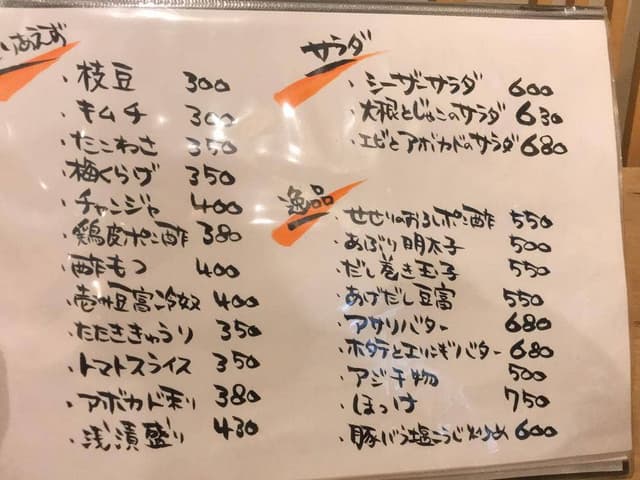 りあえず
・枝豆 300
・キムチ 300
・たこわさ 350
・梅くらげ 350
・チャンジャ 400
・鶏皮ポン酢 380
・酢もつ 400
・壱州豆富冷奴 400
・たたききゅうり 350
・トマトスライス 350
・アボカド刺 380
・浅漬盛り 430
サラダ
・シーザーサラダ 600
・大根とじゃこのサラダ 630
・エビとアボカドのサラダ 680
逸品
・せせりのおろしポン酢 550
・あぶり明太子 500
・だし巻き玉子 550
・あげだし豆富 550
・アサリバター 680
・ホタテとエリンギバター 680
・アジ干物 500
・ほっけ 750
・豚バラ塩こうじ炒め 600